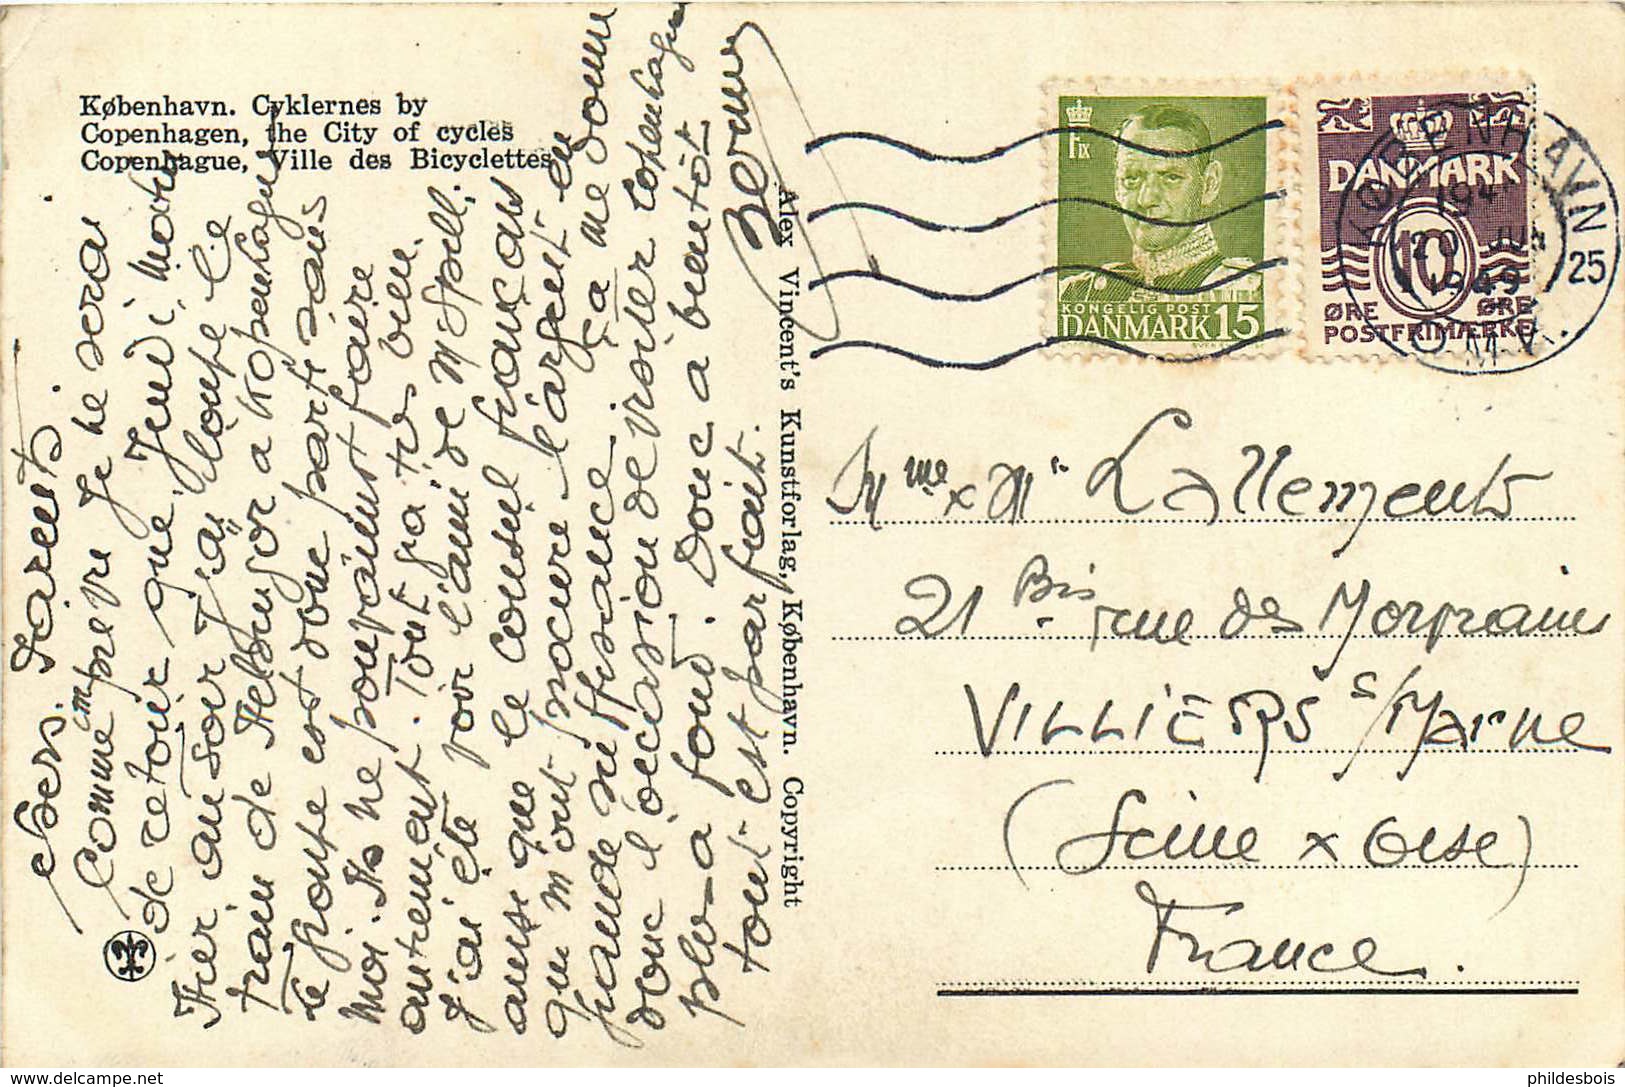 København. Cyklernes by
Copenhagen, the City of cycles
Copenhague, Ville des Bicyclettes
Chers Parents.
Comme imprévu je ne serai
de retour que Jeudi matin
Hier au soir j'ai loupé le
train de Helsingör a Kopenhague
le groupe est donc parti sans
moi. Ils ne pouvaient faire
autrement. Tout ça très bien.
J'ai été voir l'ami de M. Spill.
ainsi que le Consul français
qui m'ont procuré l'argent en
grande suffisance. Ça me donne
donc l'occasion de visiter Copenhague
plus a fond. Donc a bientôt
tout est parfait.
Alex Vincent's Kunstforlag, København. Copyright
FIX
KONGELIG POST
DANMARK 15
DANMARK
10
ØRE ØRE
POSTFRIMÆRKE
KØBENHAVN
20 JUN
1949
25
OMK.
Mme x Mr Lallements
21 Bis rue des
VILLIERS s/Marne
(Seine x Oise)
France.
phildesbois